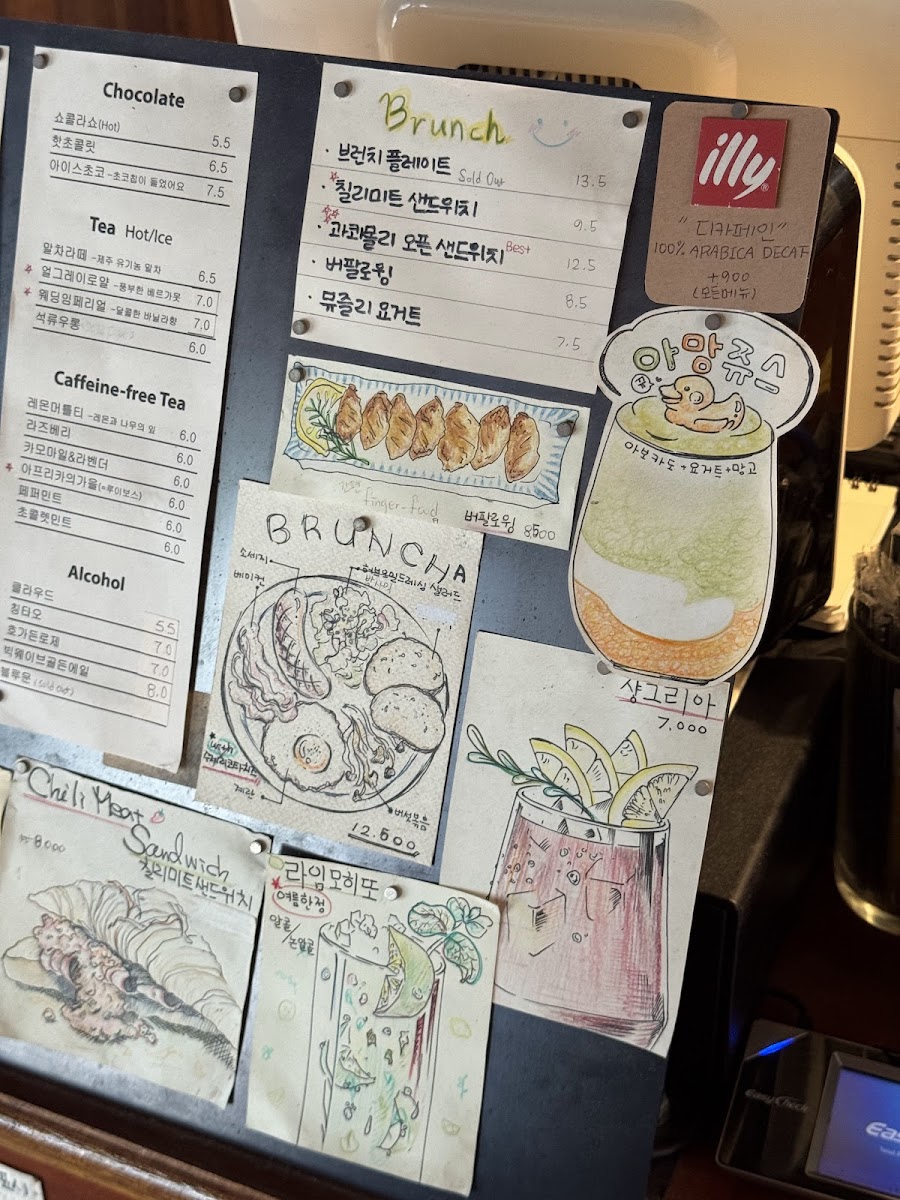 Chocolate
쇼콜라쇼(Hot) 5.5
핫초콜릿 6.5
아이스초코 -초코칩이 들었어요 7.5
Tea Hot/Ice
말차라떼 -제주 유기농 말차 6.5
얼그레이로얄 -풍부한 베르가못 7.0
웨딩임페리얼 -달콤한 바닐라향 7.0
석류우롱 6.0
Caffeine-free Tea
레몬머틀티 -레몬과 나무의 잎 6.0
라즈베리 6.0
카모마일&라벤더 6.0
아프리카의가을(=루이보스) 6.0
페퍼민트 6.0
초콜렛민트 6.0
Alcohol
클라우드 5.5
칭타오 7.0
호가든로제 7.0
빅웨이브골든에일 8.0
블루문 (Sold Out)
Brunch
· 브런치 플레이트 Sold Out 13.5
· 칠리미트 샌드위치 9.5
· 과콰몰리 오픈 샌드위치 Best 12.5
· 버팔로윙 8.5
· 뮤즐리 요거트 7.5
illy
"디카페인"
100% ARABICA DECAF
+900
(모든메뉴)
야망쥬스
아보카도+요거트+망고
finger-food
버팔로윙 8,500
BRUNCHA
소세지
베이컨
허브오일드레싱 샐러드
with
수제리코타치즈
계란
버섯볶음
12.500
샹그리아
7,000
Chili Meat
Sandwich
칠리미트샌드위치
8.000
라임모히또
여름한정
알콜
/논알콜
EasyCheck